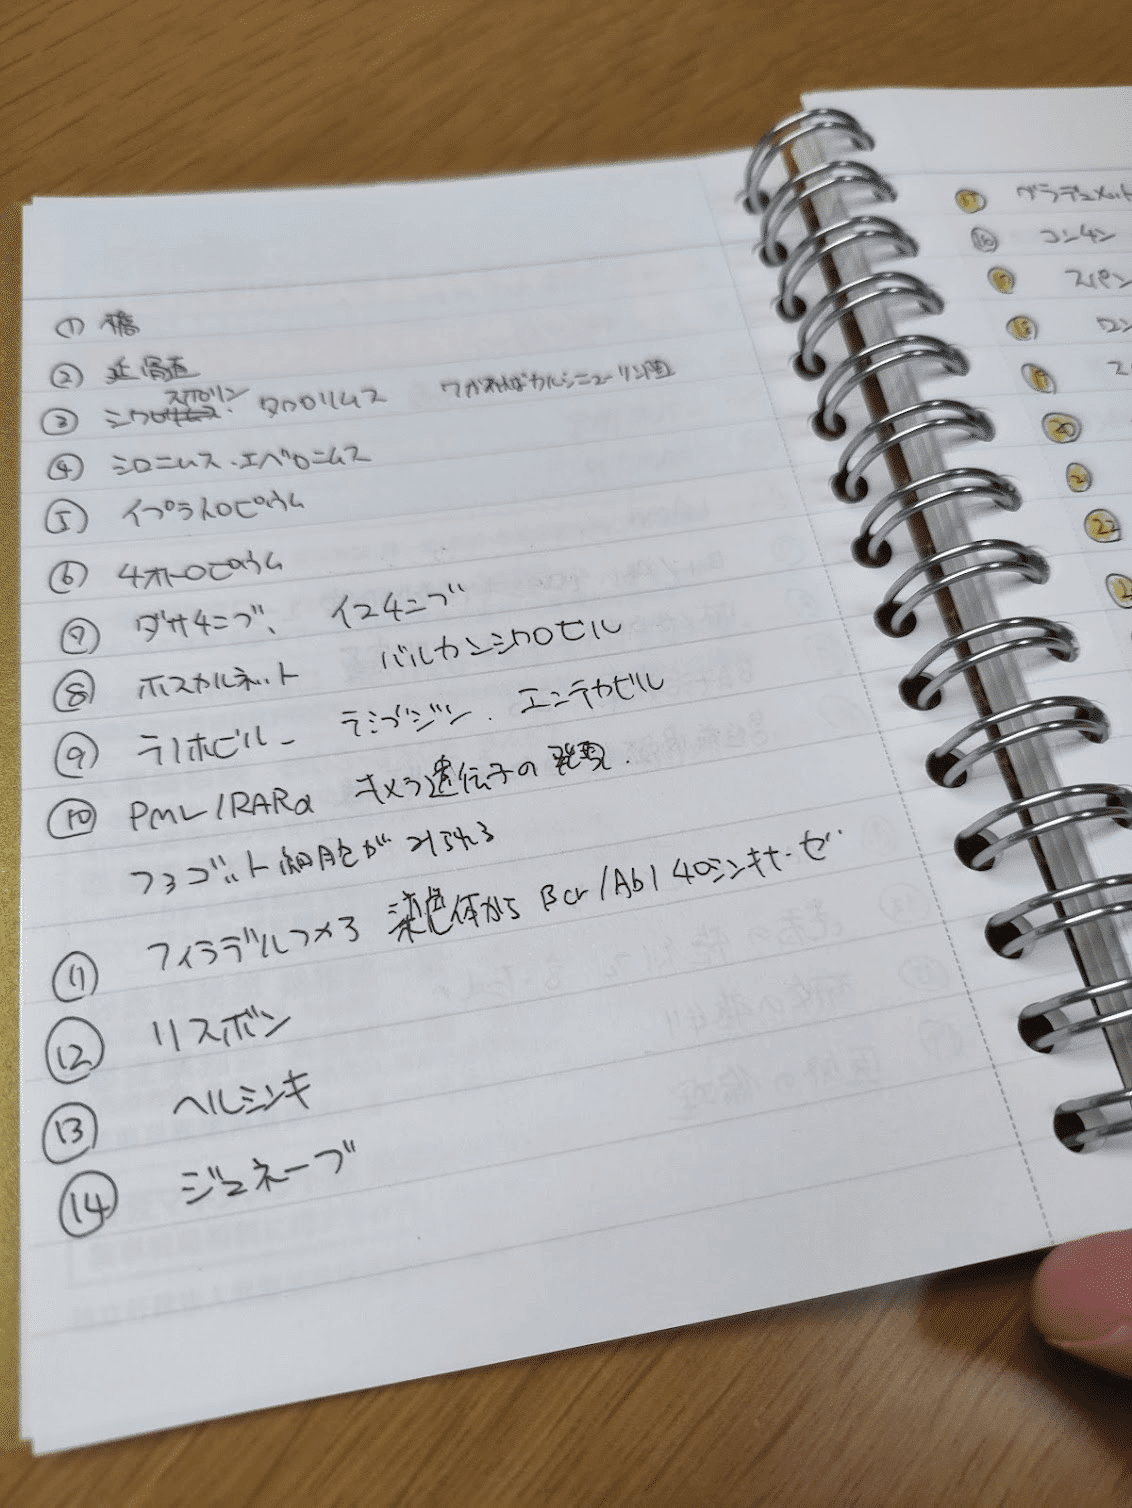 ① 橋
② 延髄
③ シクロスポリン、タクロリムス ワかればカルシニューリン
④ シロニムス・エベロニムス
⑤ イプラトロピウム
⑥ チオトロピウム
⑦ ダサチニブ、 イマチニブ
⑧ ホスカルネット バルガンシクロビル
⑨ テノホビル ラミブジン、エンテカビル
⑩ PML/RARα キメラ遺伝子の発現.
ファゴット細胞がみられる
⑪ フィラデルフィア 染色体から Bcr/Abl チロシンキナーゼ
⑫ リスボン
⑬ ヘルシンキ
⑭ ジュネーブ
グラデュメット
⑯ コンチン
スパン
⑱
⑲ ス
⑳
㉒